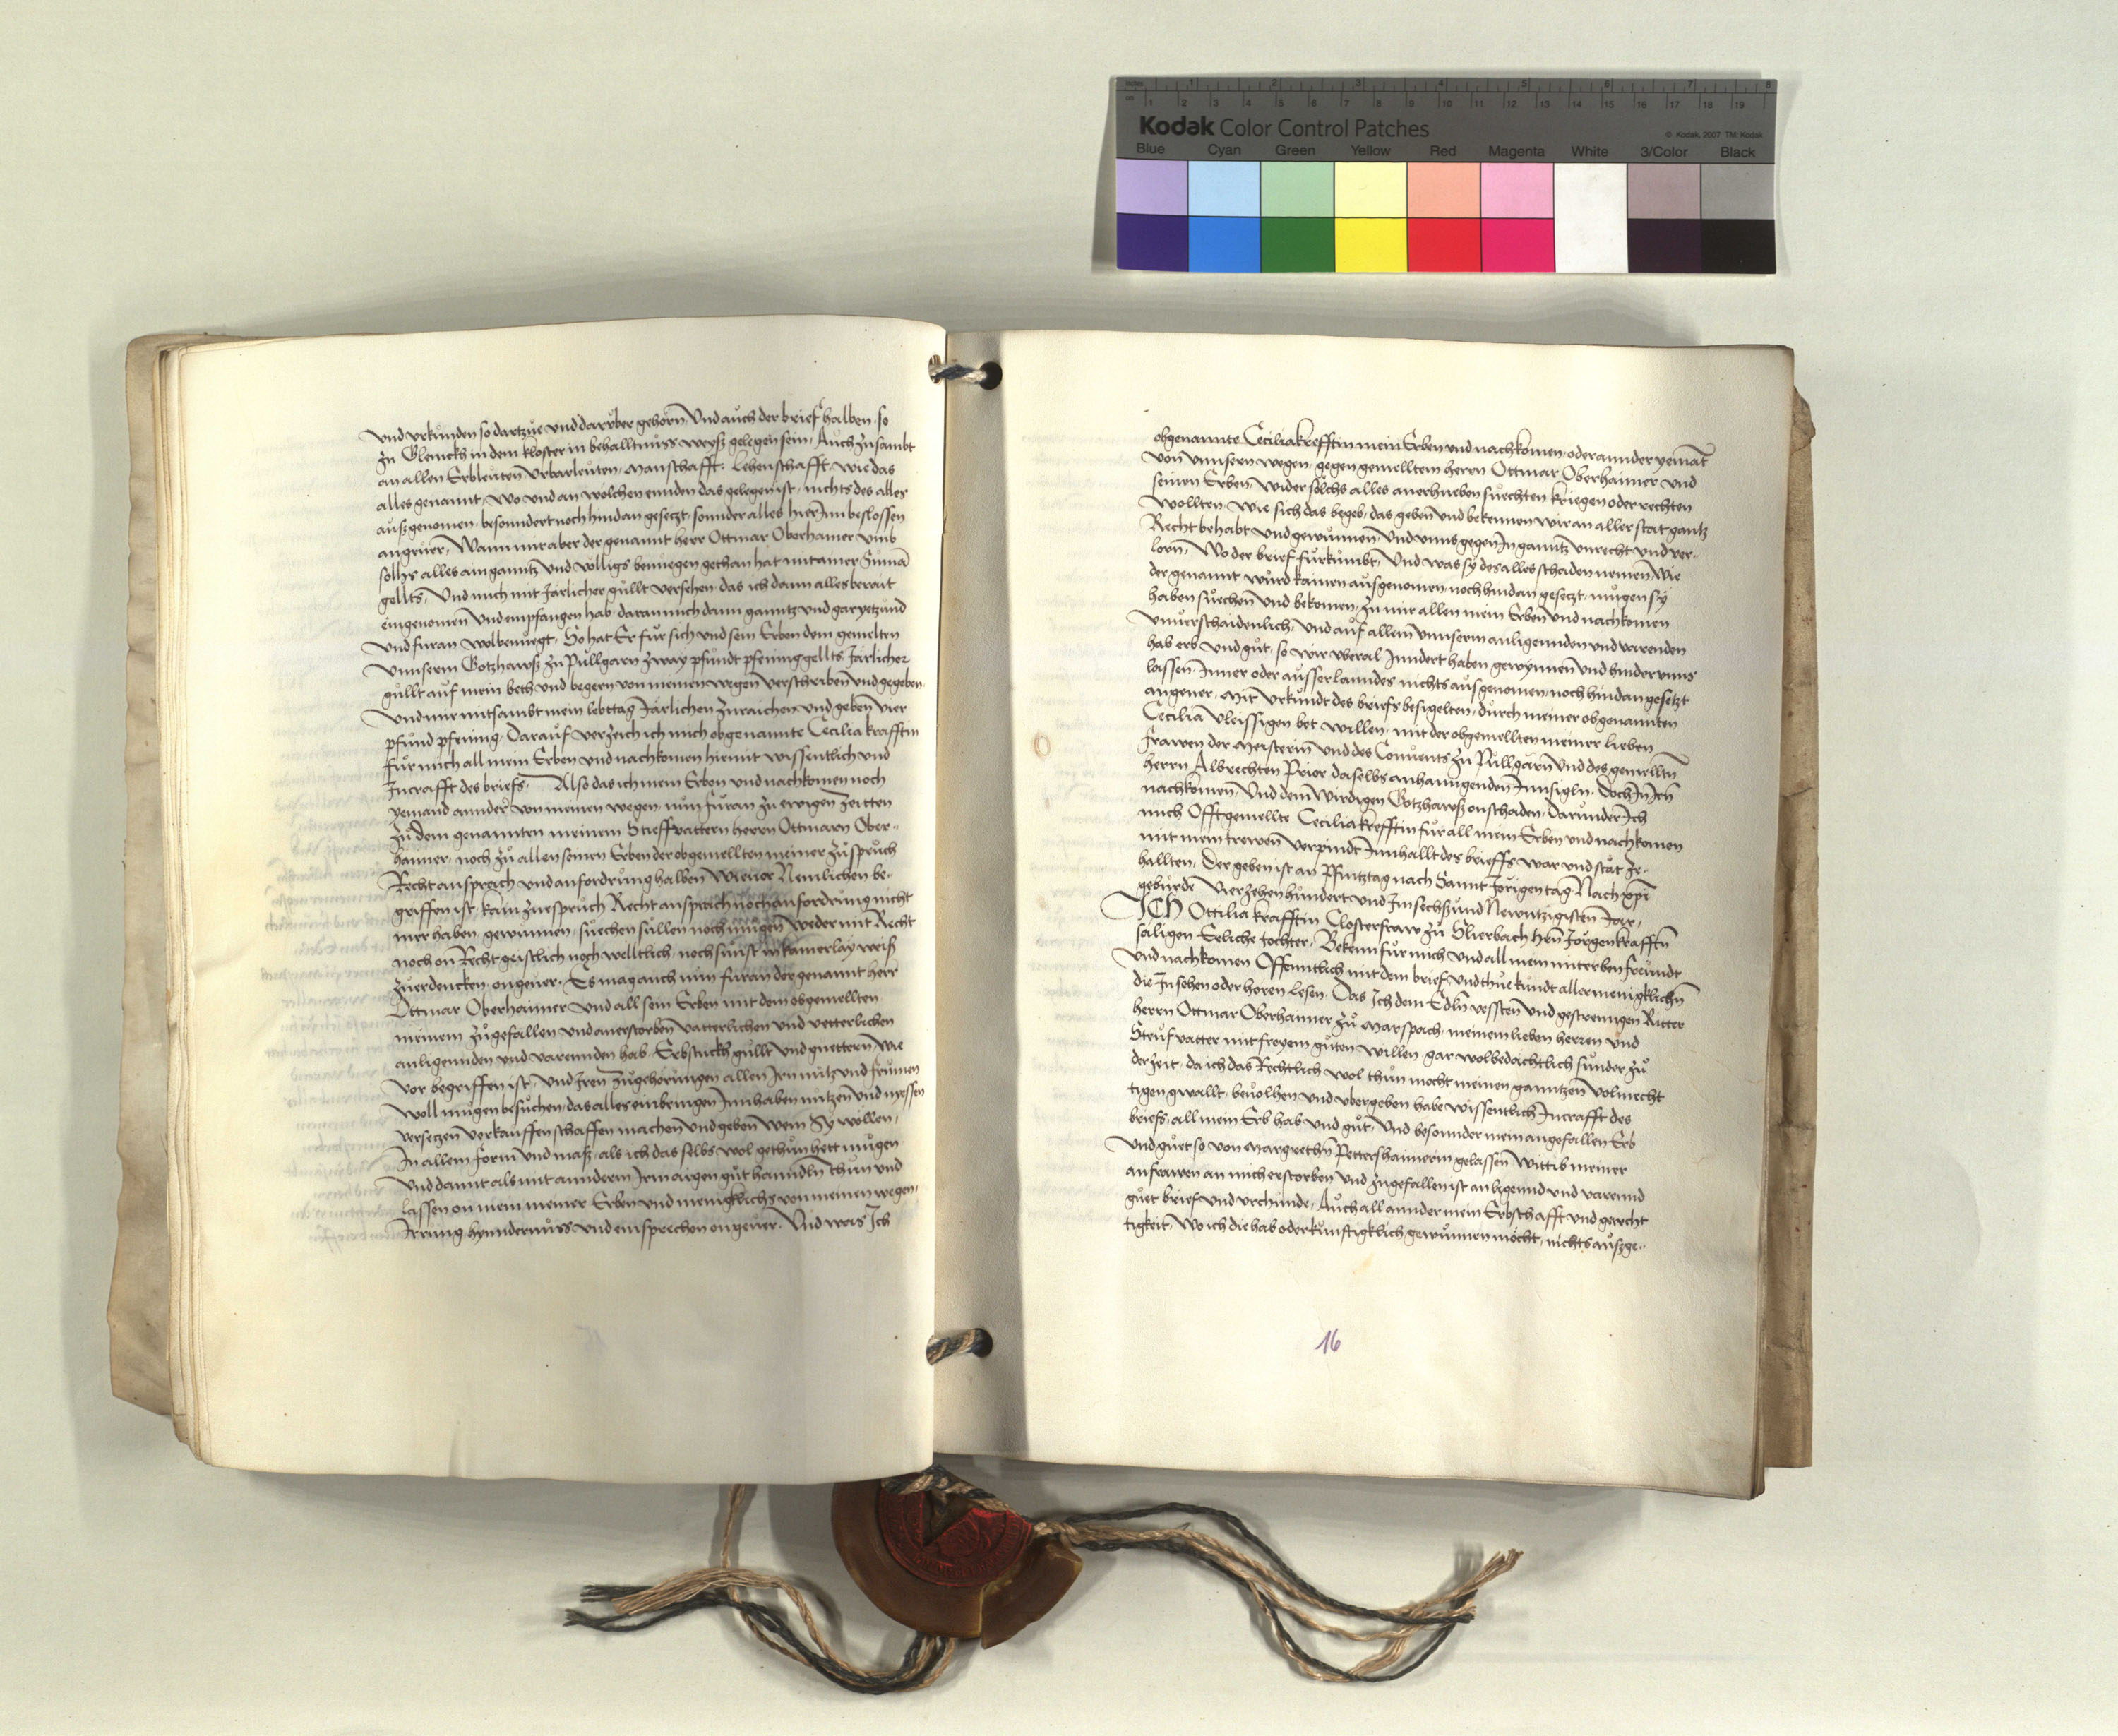 Kodak Color Control Patches
© Kodak, 2007 TM: Kodak
Blue Cyan Green Yellow Red Magenta White 3/Color Black
und vrkunden so dartzue und daruber gehorn Und auch der brief halben so
zu Glennckh in dem kloster in behalltnuss weyß gelegen sein, Auch zusambt
an allen Erbleuten Vrbarleuten, Manschafft, Lehenschafft, wie das
alles genannt, wo und an wolchen ennden das gelegen ist, nichts des alles
außgenomen, besonndert noch hindan gesetzt, sonnder alles hierInn beslossen
angeuer, Wann mir aber der genannt herr Ottmar Oberhaimer vmb
solhs alles ain ganntz und volligs benuegen gethan hat mit ainer Summa
gellts, Und mich mit Järlicher güllt versehen, das ich dann alles berait
eingenomen Und empfangen hab, daran mich dann ganntz und gar yetzund
Und furan wolbenuegt, So hat Er für sich und sein Erben dem gemelten
Unnserm Gotzhawß zu Pullgarn zway pfundt pfening gellts Järlicher
güllt auf mein beth und begern von meinen wegen verschriben und gegeben
Und mir mitsambt mein lebttag Järlichen zuraichen und geben vier
pfund pfening, Darauf verzeich ich mich obgenannte Cecilia krafftin
für mich all mein Erben und nachkomen hiemit wissentlich und
Incrafft des briefs, Also das ich mein Erben und nachkomen noch
yemand annder von meinen wegen, nun furan zu ewigen Zeitten
zu dem genannten meinem Stieffvattern herrn Ottmarn Ober-
haimer, noch zu allen seinen Erben der obgemellten meiner zuspruch
Recht ansprach und anfordrung halben wie vor Nemlichen be-
griffen ist, kain zuespruch Recht ansprach noch anfordrung nicht
mer haben, gewinnen, suechen sullen noch mugen weder mit Recht
noch on Recht geistlich noch welltlich, noch sunst in kainerlay weiß
zuerdencken, ongeuer. Es mag auch nun furan der genannt herr
Ottmar Oberhaimer und all sein Erben mit dem obgemellten
meinem zugefallen und anerstorben vatterlichen und vetterlichen
anligennden und varennden hab, Erbstuckh güllt und guettern wie
vor begriffen ist, und Iren zugehorungen allen Irn nutz und frumen
woll mugen besuchen, das alles einbringen Innhaben nutzen und nyessen
versetzen verkauffen schaffen machen und geben wem Sy wollen,
In allem form und maß, als ich das selbs wol gethun hett mugen
Und damit als mit annderm Irm aigen gut hanndln thun und
lassen on mein meiner Erben und menigklichs von meinen wegen,
Irrung hynndernuss und einsprechen ongeuer. Und weis Ich
obgenannte Cecilia krefftin mein Erben und nachkomen, oder annder yemat
von unnsern wegen, gegen gemelltem herrn Ottmar Oberhaimer und
seinen Erben, wider solchs alles anerhueben suechten kriegen oder rechten
wollten, wie sich das begeb, das geben und bekennen wir an aller stat gantz
Recht behabt und gewunnen, Und unns gegen In ganntz unrecht und ver-
lorn, Wo der brief furkumbt, Und was sy des alles schaden nemen Wie
der genannt wurd kainen ausgenomen, noch hindan gesetzt, mugen sy
haben suechen und bekomen, zu mir allen mein Erben und nachkomen
Unuerschaidenlich, und auf allem unnserm anligennden und varenden
hab erb und gut, so wir uberal Inndert haben, gewynnen und hinder unns
lassen, Inner oder ausser lanndes nichts ausgenomen, noch hindan gesetzt
angeuer, Mit vrkundt des briefs besigelten, durch meiner obgenannten
Cecilia vleissigen bet willen, mit der obgemellten meiner lieben
frawen der Meisterin und des Conuents zu Pullgarn Und des gemelltn
herrn Albrechten Prior daselbs anhanngenden Innsigln, doch In Irn
nachkomen, Und dem wirdigen Gotzhawß onschaden, Darunder Ich
mich Offtgemellte Cecilia krefftin für all mein Erben und nachkomen
mit mein trewen verpindt Innhallt des brieffs war und stät ze-
hallten, Der geben ist an Pfintztag nach Sannt Jorigen tag Nach xpi
gebürde Vierzehenhundert und Im sechsund Newntzigisten Jar,
ICH Ottilia krafftin Closterfraw zu Slierbach hrn Jorgen krafftn
säligen Eeliche tochter, Bekenn für mich und all mein miterben freundt
Und nachkomen Offenntlich mit dem brief und thue kundt allermenigklichn
die In sehen oder horen lesen, Das Ich dem Edln vessten und gestrenngen Ritter
herrn Ottmar Oberhaimer zu Marspach, meinem lieben herren und
Steufvatter mit freyem guten willen, gar wolbedachtlich sunder zu
der zeit, da ich das Rechtlich wol thun mocht meinen ganntzen volmecht
tigen gwallt, beuolhen und ubergeben habe wissentlich Incrafft des
briefs, all mein Erb hab und gut, Und besonnder mein angefallen Erb
Und guet so von Margrethn Pettershaimerin gelassen Wittib meiner
anfrawen an mich erstorben und zugefallen ist anligennd und varennd
guet brief und vrchunde, Auch all annder mein Erbschafft und gerecht
tigkeit, Wo ich die hab oder kunfftigklich gewunnen mocht, nichts ausge-
16